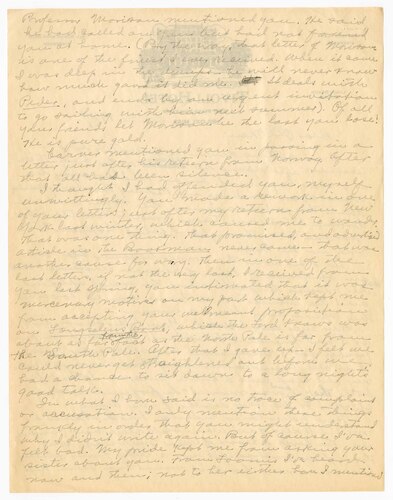 Professor Morison mentioned you. He said
he had called on you but had not found
you at home. (By the way, that letter of Morison
is one of the finest I ever received. When it came
I was deep in the dumps. He will never know
how much good it did me. It deals with
and ends by an urgent invitation
to go sailing with him next summer) Of all
your friends let Morison be the last you lose!
He is pure gold.
mentioned you in passing in a
letter just after his return from Norway. After
that all had been silence.
I thought I had offended you, myself
unwittingly. You made a remark in one
of your letters, just after my return from New
York last winter, which caused me to wonder
that was one thing. That promised, and
article in the Bookman never came - that was
another cause for worry. Then in one of the
last letters, if not the very last, I received from
you last spring, you intimated that it was
mercenary motives on my part which kept me
from accepting your well meant proposition
on , while the Lord knows was
about as far from it as the North Pole is far from
the South Pole. After that I gave up. I felt we
could never get straightened out again until we
had a chance to sit down to a long night's
good talk.
In what I have said is no trace of complaint
or accusation. I only mention these things
frankly in order that you might understand
why I didn't write again. But of course I've
felt bad. My pride kept me from asking your
sister about you. From I've heard
now and then; not to her either have I mentioned